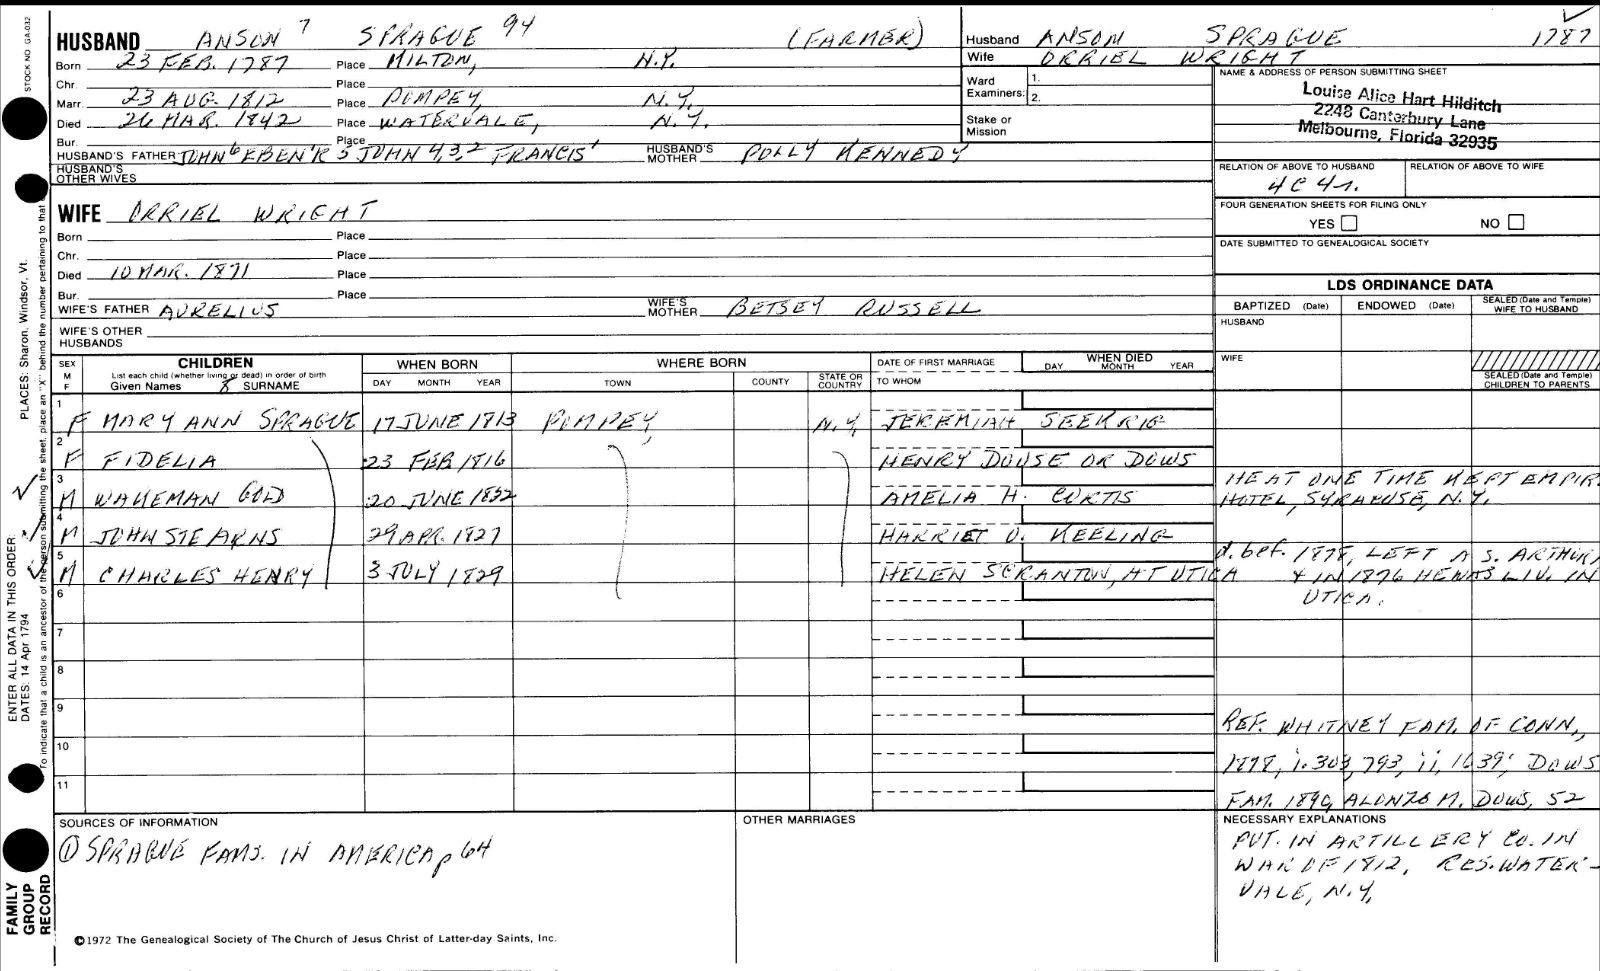 STOCK NO GA-032
HUSBAND ANSON 7 SPRAGUE 94 (FARMER)
Born 23 FEB. 1787 Place MILTON, N.Y.
Chr. Place
Marr. 23 AUG. 1812 Place POMPEY, N.Y.
Died 26 MAR. 1842 Place WATERVALE, N.Y.
Bur. Place
HUSBAND'S FATHER JOHN 6 EBEN'R 5 JOHN 4,3,2 FRANCIS 1 HUSBAND'S MOTHER POLLY KENNEDY
HUSBAND'S OTHER WIVES
WIFE ORRIEL WRIGHT
Born Place
Chr. Place
Died 10 MAR. 1871 Place
Bur. Place
WIFE'S FATHER AURELIUS WIFE'S MOTHER BETSEY RUSSELL
WIFE'S OTHER HUSBANDS
Husband ANSON SPRAGUE 1787
Wife ORRIEL WRIGHT
Ward Examiners: 1. 2.
Stake or Mission
NAME & ADDRESS OF PERSON SUBMITTING SHEET
Louise Alice Hart Hilditch
2248 Canterbury Lane
Melbourne, Florida 32935
RELATION OF ABOVE TO HUSBAND RELATION OF ABOVE TO WIFE
4C4r.
FOUR GENERATION SHEETS FOR FILING ONLY
YES NO
DATE SUBMITTED TO GENEALOGICAL SOCIETY
LDS ORDINANCE DATA
BAPTIZED (Date) ENDOWED (Date) SEALED (Date and Temple) WIFE TO HUSBAND
HUSBAND
WIFE
SEALED (Date and Temple) CHILDREN TO PARENTS
SEX M F CHILDREN WHEN BORN WHERE BORN DATE OF FIRST MARRIAGE WHEN DIED
List each child (whether living or dead) in order of birth DAY MONTH YEAR TOWN COUNTY STATE OR COUNTRY TO WHOM DAY MONTH YEAR
Given Names & SURNAME
1 F MARY ANN SPRAGUE 17 JUNE 1813 POMPEY, N.Y, JEREMIAH SEEKRIG
2 F FIDELIA 23 FEB 1816 HENRY DOUSE OR DOWS
3 M WAKEMAN GOLD 20 JUNE 1822 AMELIA H. CURTIS HE AT ONE TIME KEPT EMPIRE HOTEL, SYRACUSE, N.Y.
4 M JOHN STEARNS 29 APR. 1827 HARRIET O. KEELING
5 M CHARLES HENRY 3 JULY 1829 HELEN SCRANTON, AT UTICA d. bef. 1878, LEFT A S. ARTHUR, & IN 1876 HE WAS LIV. IN UTICA.
6
7
8
9
10
11
REF. WHITNEY FAM. OF CONN.,
1878, i. 303, 793, ii, 1639; DOWS
FAM. 1890, ALONZO M. DOWS, 52
SOURCES OF INFORMATION
① SPRAGUE FAMS. IN AMERICA p 64
OTHER MARRIAGES
NECESSARY EXPLANATIONS
PVT. IN ARTILLERY CO. IN
WAR OF 1812, RES. WATER-
VALE, N.Y.
©1972 The Genealogical Society of The Church of Jesus Christ of Latter-day Saints, Inc.
FAMILY GROUP RECORD
ENTER ALL DATA IN THIS ORDER:
DATES: 14 Apr 1794 PLACES: Sharon, Windsor, Vt.
To indicate that a child is an ancestor of the person submitting the sheet, place an "X" behind the number pertaining to that